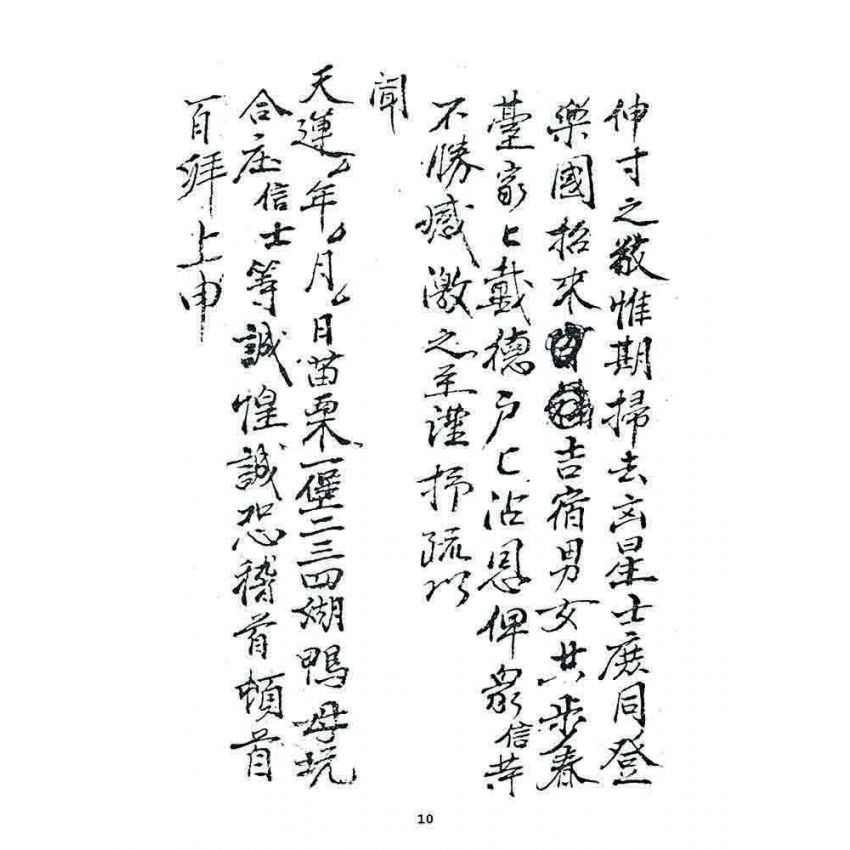 伸寸之敬惟期掃去凶星士庶同登
樂國招來吉宿男女共步春
臺家〻戴德戶〻沾恩俾眾信等
不勝感激之至謹抒疏以
聞
天運 年 月 日苗栗一堡二三四湖鴨母坑
合庄信士等誠惶誠恐稽首頓首
百拜上申
10